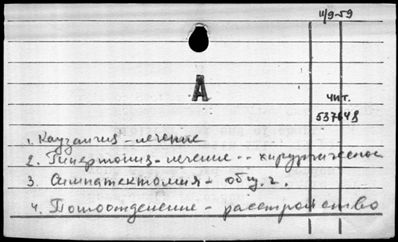 11/9-59
А
чит.
537648
1. Каузалгия - лечение
2. Гипертония - лечение -- хирургическое
3. Симпатектомия - общ. г.
4. Потоотделение - расстройство